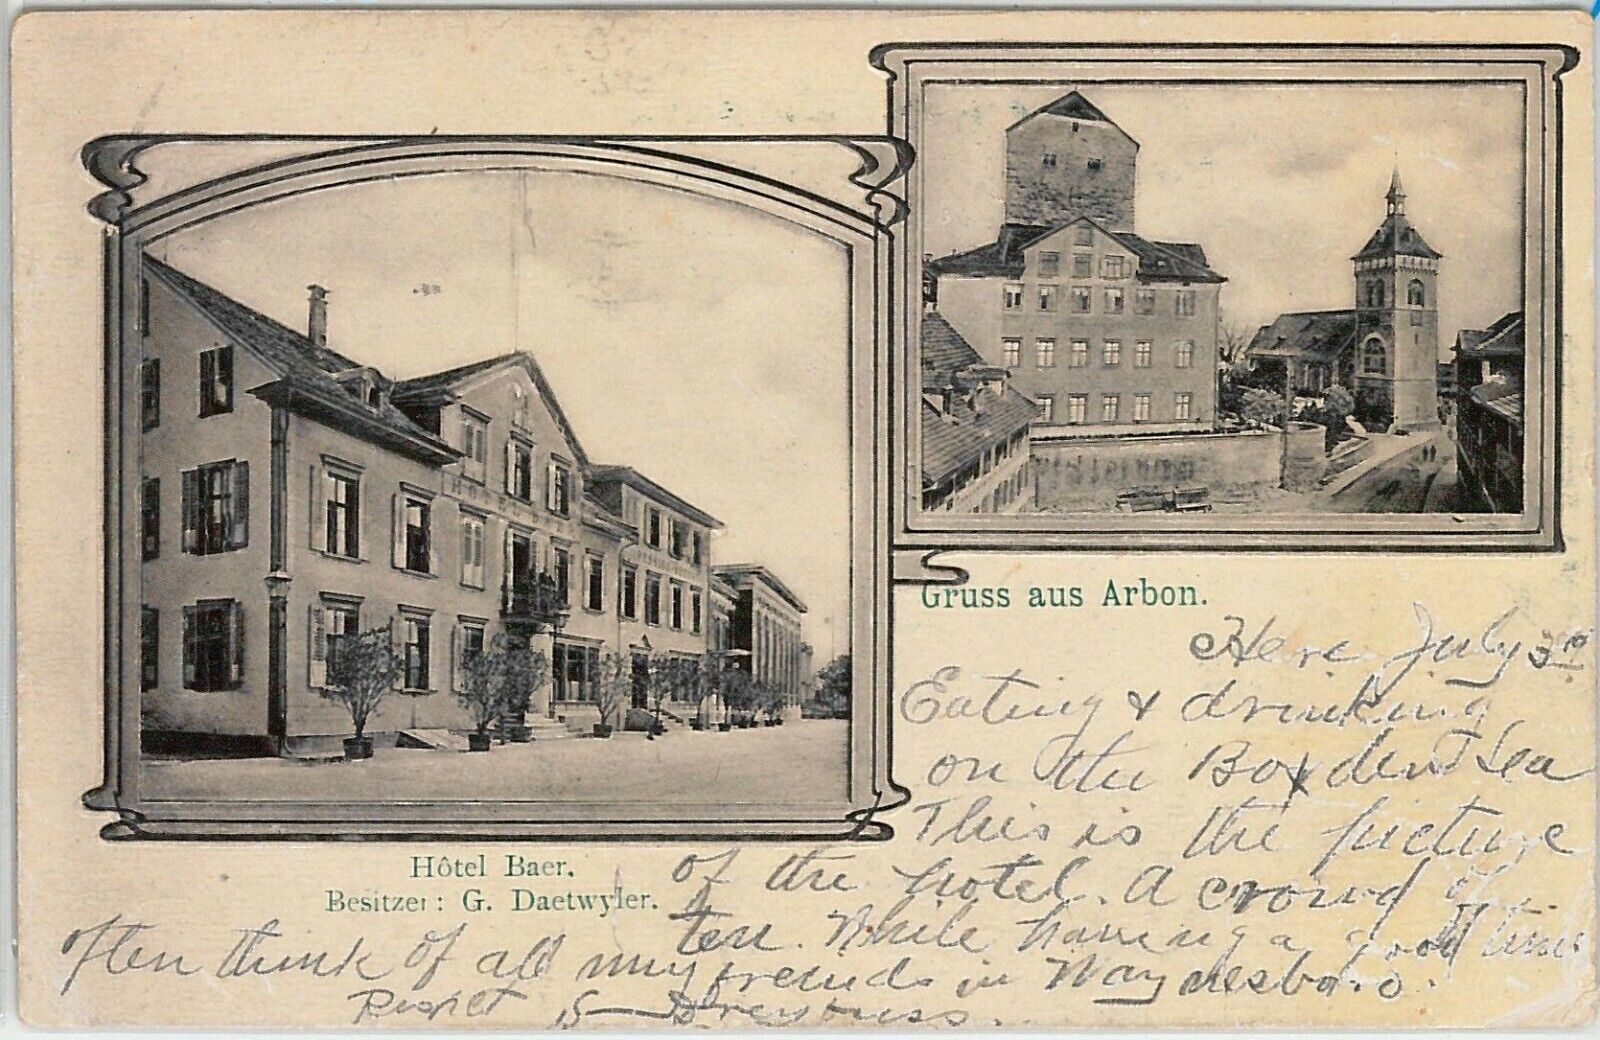 Gruss aus Arbon.
Hôtel Baer.
Besitzer: G. Daetwyler.
Here July 3rd
Eating & drinking
on the Boxden Sea
This is the picture
of the hotel. A crowd of
ten. While having a good time
often think of all my freinds in Waynesboro.
S Dreyfuss.